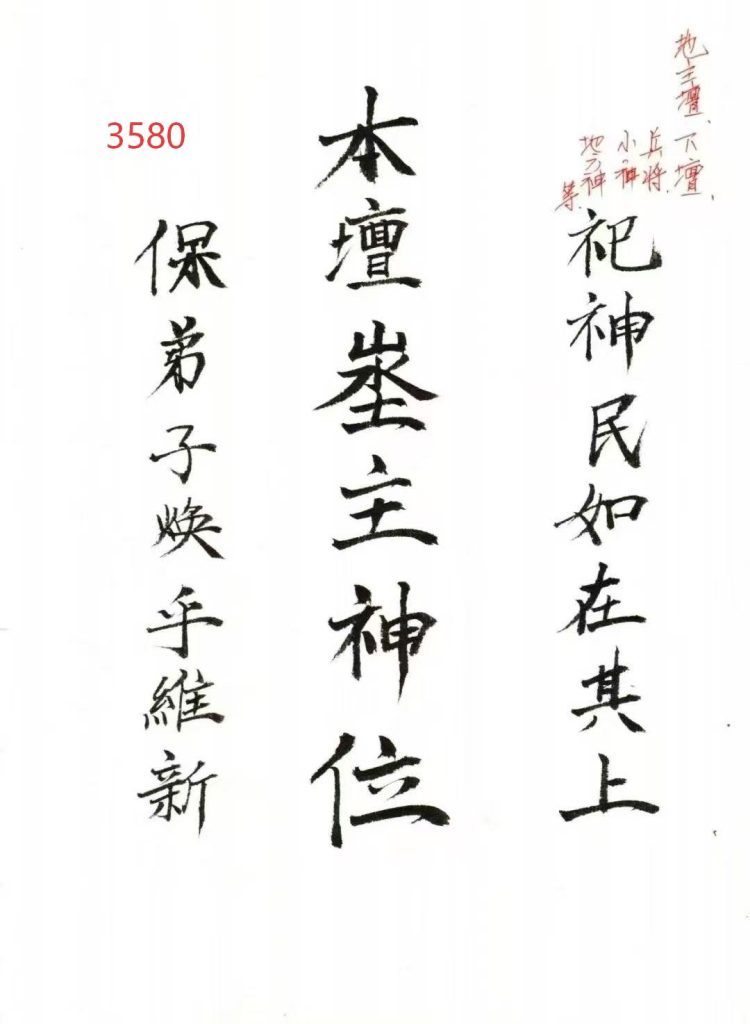 地主壇、下壇、
兵將、
小神
地方神
等
祀神民如在其上
本壇埊主神位
3580
保弟子煥乎維新